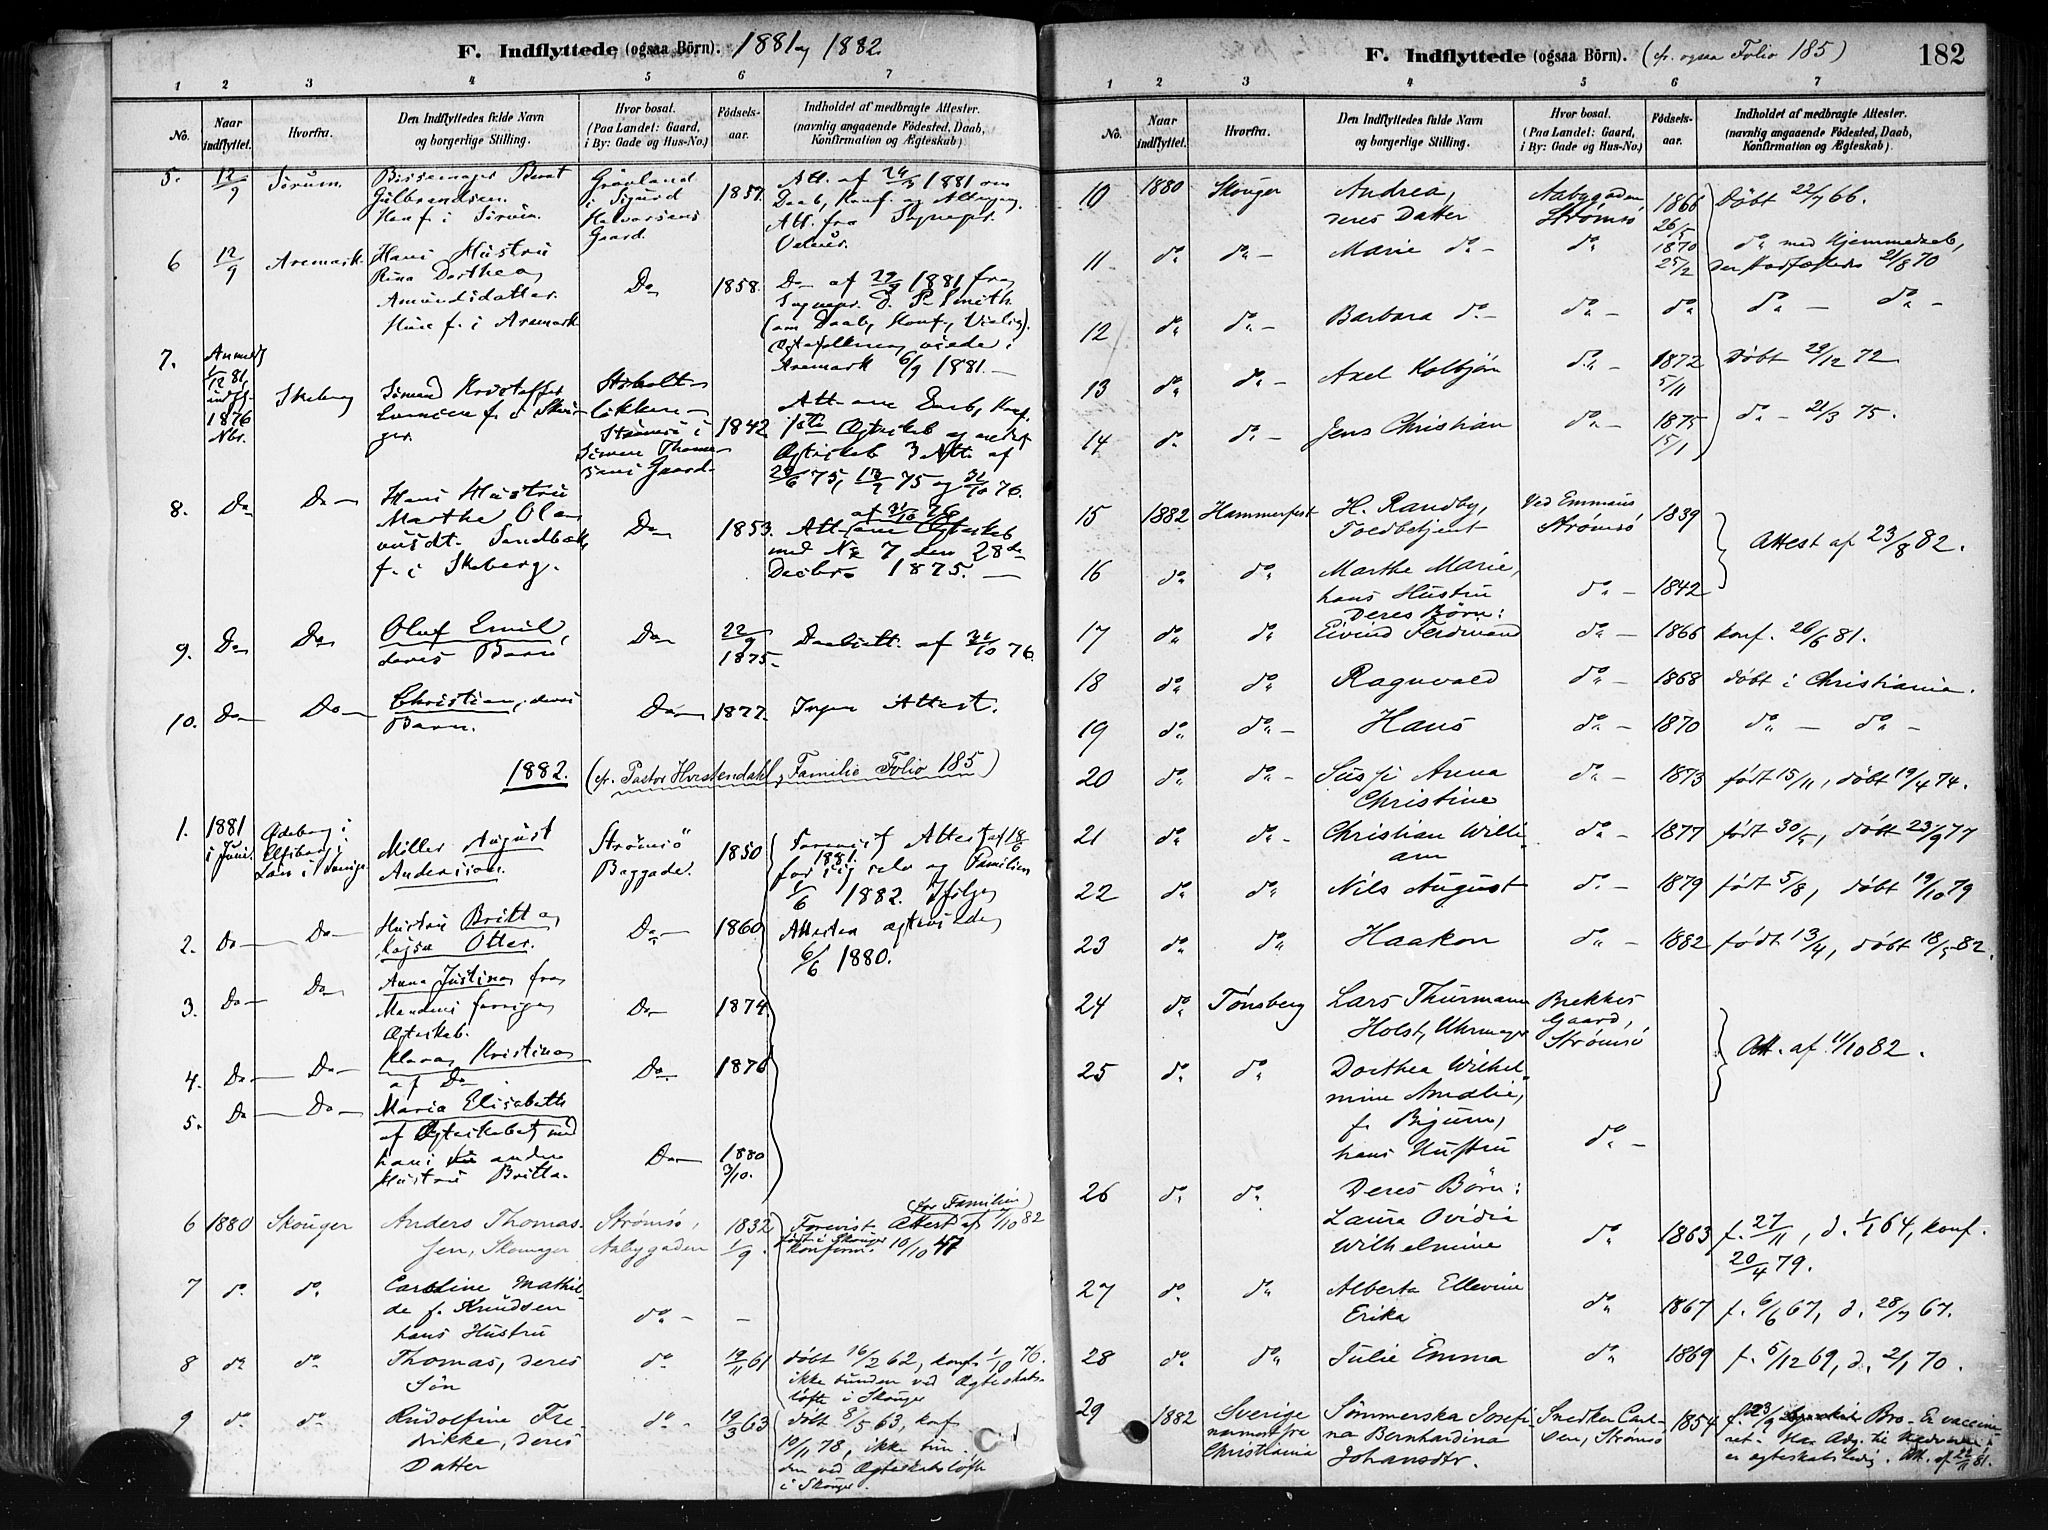 F. Indflyttede (ogsaa Börn). 1881 og 1882.
1 2 3 4 5 6 7
No. Naar indflyttet. Hvorfra. Den Indflyttedes fulde Navn og borgerlige Stilling. Hvor bosat. (Paa Landet: Gaard, i By: Gade og Hus-No.) Födsels-aar. Indholdet af medbragte Attester. (navnlig angaaende Födested, Daab, Konfirmation og Ægteskab)
5. 12/9 Sørum
Gulbrandsen
Grønland
i Sigurd
Halvorsens
Gaard.
1857.
Att. af 24/3 1881 om
Daab, Konf. og Altergang.
Att. fra Sognepr.
6 12/9 Aremark
Hans Hustru
Rina Dorthea
Amundsdatter.
f. i Aremark
Do 1858.
Do af 29/9 1881 fra
Sognepr. D. P. Smith
(om Daab, Konf,
viede i
Aremark 6/9 1881.
7. Anmeldt
1/12 81,
indfl.
1876
Nbr.
Skeberg
Simen Thome-
sens Gaard.
1842
Att. om Daab, Konf.
Ægteskab 3 Att. af
8. Do Do
Hans Hustru
Marthe Ola-
f. i Skeberg.
Do 1853.
Ægteskab
med No 7 den 28de
Decbr. 1875.
9. Do Do
Oluf Emil,
deres Barn
Do 22/9 1875.
Daabsatt. af 31/10 76.
10. Do Do
Christian, deres
Barn.
Do 1877. Ingen Attest.
1882. (cfr. Pastor Hvistendahl, Familie Folio 185)
1. 1881 i Juni.
Ødeborg i
Elfsborg
Län i Sverige
Møller August
Andersson.
Strømsø
Baggade.
1850
Forevist Attest af 18/6
1881.
for sig selv og Familien
1/6 1882. Ifølge
Attesten ægteviede
6/6 1880.
2. Do Do
Hustru Britta
Kajsa Otter.
Do 1860
3. Do Do
Anna Justina fra
Mandens forrige
Ægteskab.
Do 1874.
4. Do Do
Klara Kristina
af Do
Do 1876
5. Do Do
Maria Elisabeth
af Ægteskabet med
hans anden
Hustru Britta.
Do 1880 3/10.
6 1880 Skouger
Anders Thomas-
sen, Skomager
Strømsø,
Aabygaden
1832 1/9.
(for Familien)
Forevist Attest af 1/10 82
født i Skouger
konfirm. 10/10 47
7 do do
Caroline Mathil-
de f. Knudsen
hans Hustru
do -
8 do do
Thomas, deres
Søn
do 19/11 61
døbt 16/2 62, konf. 1/10 76.
ikke bunden ved Ægteskabs-
løfte i Skouger
9 do do
Rudolfine Fre-
drikke, deres
Datter
do 19/3 63
døbt 8/5 63, konf
10/11 78, ikke bun-
den ved Ægteskabsløfte
i Skouger.
F. Indflyttede (ogsaa Börn). (cfr. ogsaa Folio 185) 182
1 2 3 4 5 6 7
No. Naar indflyttet. Hvorfra. Den Indflyttedes fulde Navn og borgerlige Stilling. Hvor bosat. (Paa Landet: Gaard, i By: Gade og Hus-No.) Födsels-aar. Indholdet af medbragte Attester. (navnlig angaaende Födested, Daab, Konfirmation og Ægteskab).
10 1880 Skouger
Andrea,
deres Datter
Aabygaden
Strømsø
1866 26/5
Døbt 22/7 66.
11 do do - Marie do - do 1870 25/2
do med Hjemmedaab,
21/8 70
12 do do - Barbara do - do - do do - do -
13 do do - Axel Kolbjøn do - 1872 5/11 Døbt 29/12 72
14 do do - Jens Christian do - 1875 15/1 do - 21/3 75.
15 1882 Hammerfest
H. Randby,
Toldbetjent
Ved Emmaus
Strømsø
1839
Attest af 23/8 82.
16 do do
Marthe Marie,
hans Hustru
do - 1842
Deres Børn:
17 do do Eivind Ferdinand do - 1866 konf. 26/6 81.
18 do do Ragnvald do - 1868 døbt i Christiania.
19 do do - Hans do - 1870 do - do -
20 do do -
Sussi Anna
Christine
do - 1873 født 15/11, døbt 19/4 74.
21 do do -
Christian Willi-
am
do - 1877 født 30/5, døbt 23/9 77
22 do do Nils August do - 1879 født 5/8, døbt 19/10 79
23 do do Haakon do - 1882 født 13/4, døbt 18/5 82.
24 do Tønsberg
Lars Thurmann
Holst, Uhrmager
Brekkes
Gaard,
Strømsø
Att. af 11/10 82.
25 do do
Dorthea Wilhel-
mine Amalie,
f. Bijum,
hans Hustru
do -
26 do do
Deres Børn:
Laura Ovidia
Wilhelmine
do 1863
f. 27/11, d. 1/1 64, konf.
20/4 79.
27 do do
Alberta Ellevine
Erika
do 1867 f. 6/6 67, d. 28/7 67.
28 do do Julie Emma do 1869 f. 5/12 69, d. 2/1 70.
29 1882
Sverige
nærmest fra
Christiania
Sömmerska Josefi-
na Bernhardina
Johansdtr.
Snedker Carl-
sen, Strømsø
1854
f. 23/9 Bro - Er vaccine-
ret.
er ægteskabsledig. Att. af 22/11 81.